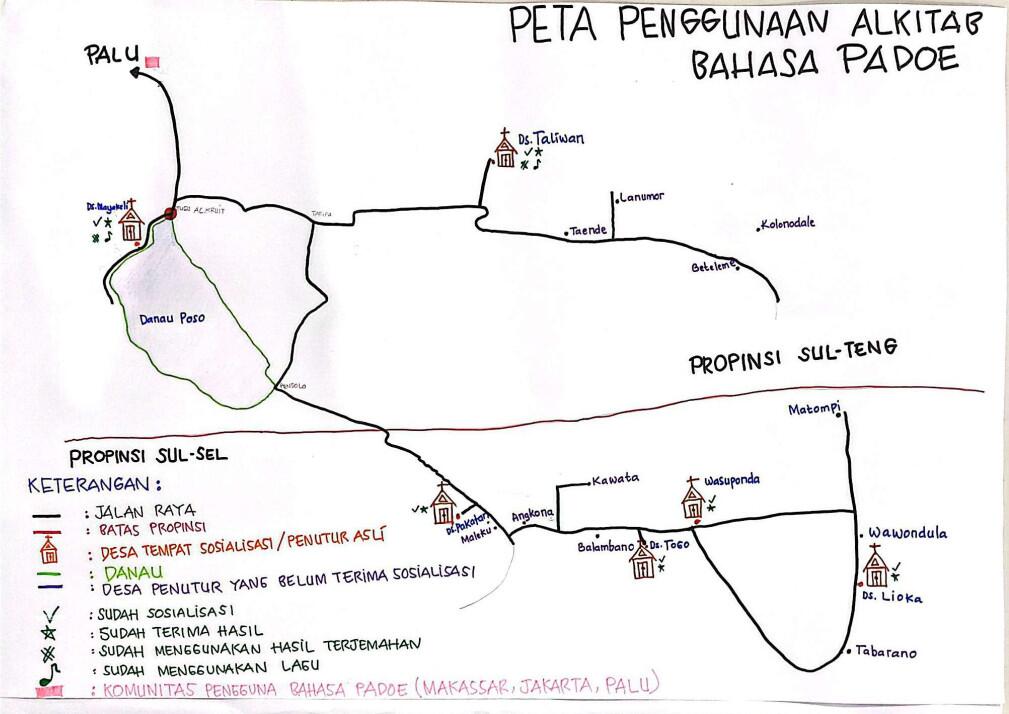 PETA PENGGUNAAN ALKITAB
BAHASA PADOE
PALU
Ds. Taliwan
Ds. Mayakeli
TUGU AL.KRUIT
TARIPA
Lanumor
Taende
Kolonodale
Beteleme
Danau Poso
PENDOLO
PROPINSI SUL-TENG
PROPINSI SUL-SEL
Matompi
Kawata
Wasuponda
Ds. Pakatan
Maleku
Angkona
Balambano
Ds. Togo
Wawondula
Ds. Lioka
Tabarano
KETERANGAN :
: JALAN RAYA
: BATAS PROPINSI
: DESA TEMPAT SOSIALISASI / PENUTUR ASLI
: DANAU
: DESA PENUTUR YANG BELUM TERIMA SOSIALISASI
: SUDAH SOSIALISASI
: SUDAH TERIMA HASIL
: SUDAH MENGGUNAKAN HASIL TERJEMAHAN
: SUDAH MENGGUNAKAN LAGU
: KOMUNITAS PENGGUNA BAHASA PADOE (MAKASSAR, JAKARTA, PALU)